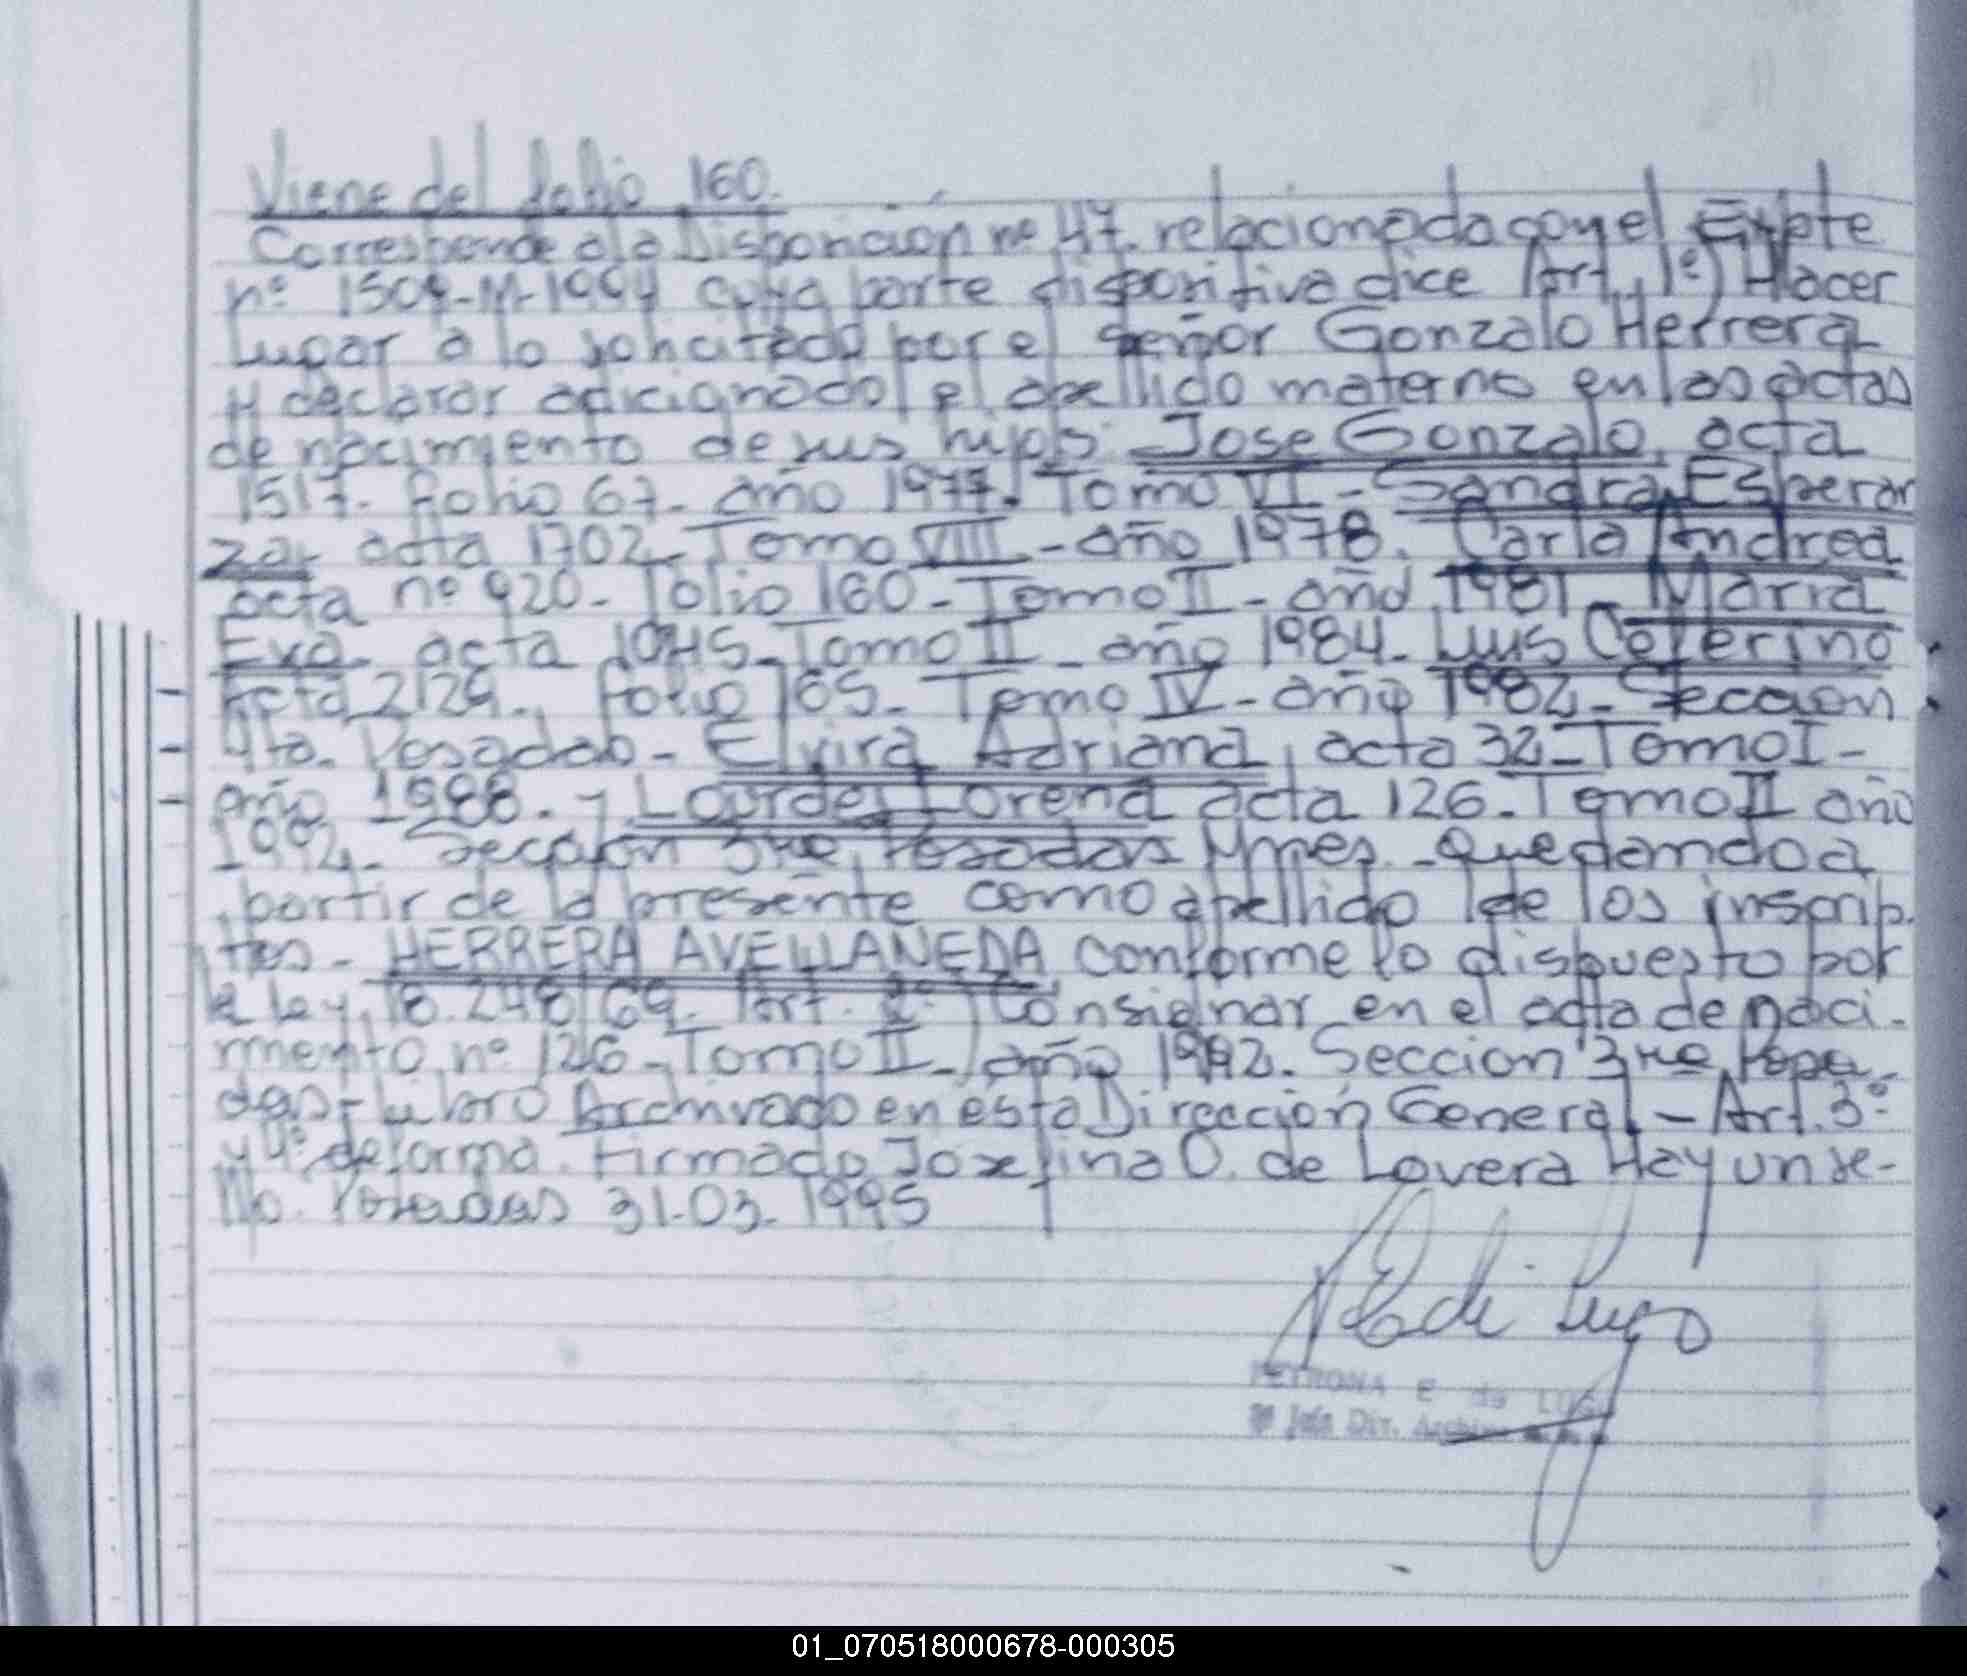 Viene del folio 160.
Corresponde a la Disposición nº 47. relacionada con el Expte
nº 1509-M-1994 cuya parte dispositiva dice Art. 1º) Hacer
Lugar a lo solicitado por el señor Gonzalo Herrera
y declarar adicionado el apellido materno en las actas
de nacimiento de sus hijos: Jose Gonzalo, acta
1517. folio 67. año 1977. Tomo VI - Sandra Esperan
za, acta 1702 - Tomo VIII - año 1978. Carla Andrea
acta nº 920 - folio 160 - Tomo II - año 1981 - Maria
Eva. acta 1045 - Tomo II - año 1984 - Luis Ceferino
Acta 2129. folio 165 - Tomo IV - año 1982 - Seccion
4ta. Posadas - Elvira Adriana, acta 32 - Tomo I -
año 1988. - y Lourdes Lorena acta 126 - Tomo II año
1992. Seccion 3ra Posadas Mnes. quedando a
partir de la presente como apellido de los inscrip
tos - HERRERA AVELLANEDA conforme lo dispuesto por
la ley 18.248/69. Art. 2º) Consignar en el acta de naci-
miento nº 126 - Tomo II - año 1992. Seccion 3ra Posa-
das - Libro Archivado en esta Dirección General - Art. 3º
y 4º de forma. Firmado Josefina O. de Lovera Hay un se-
llo. Posadas 31-03-1995
PETRONA E de LUGO
Jefe Div. Archivo
01_070518000678-000305